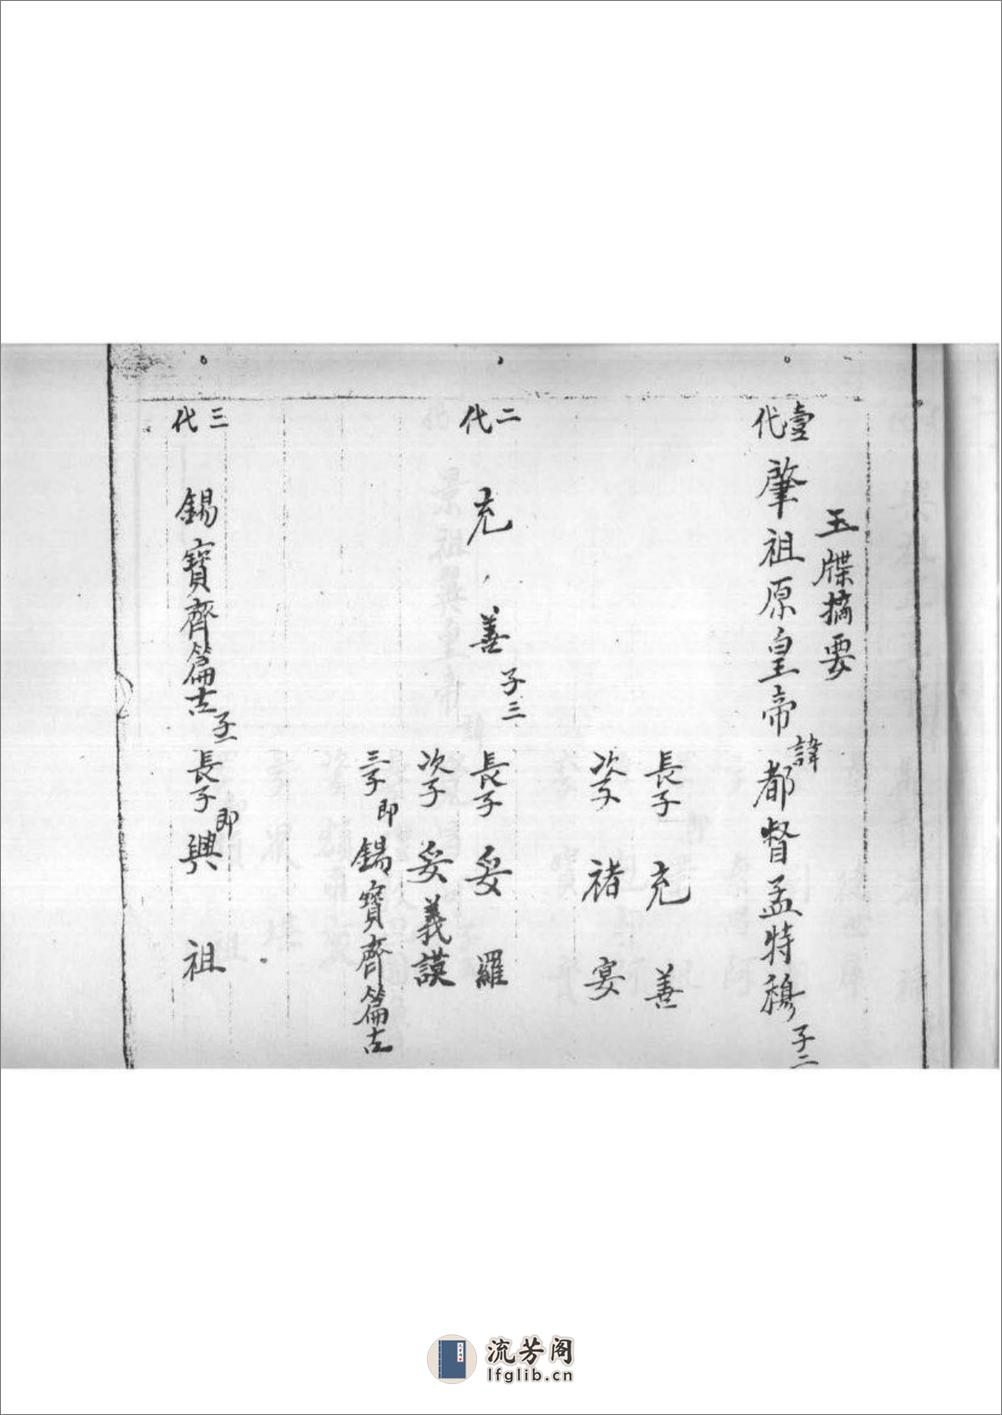 玉牒摘要
壹代
肇祖原皇帝諱都督孟特穆子二
長子充善
次子褚宴
二代
充善子三
長子妥羅
次子妥義謨
三子即錫寶齊篇古
三代
錫寶齊篇古子一
長子即興祖
流芳阁
lfglib.cn